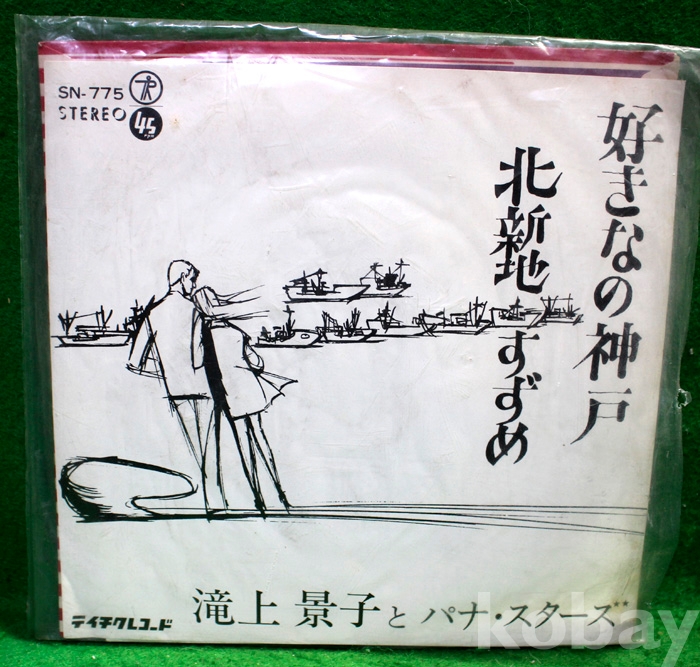 SN-775
STEREO
45
好きなの神戸
北新地すずめ
滝上 景子と パナ・スターズ
テイチクレコード
kobay